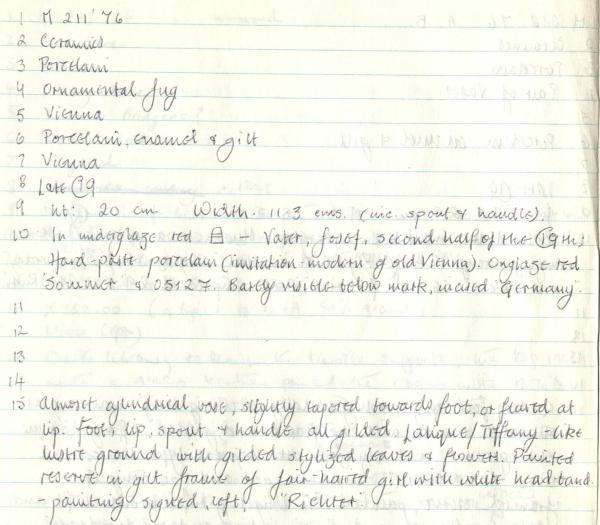 1 M 211 '76
2 Ceramics
3 Porcelain
4 Ornamental Jug
5 Vienna
6 Porcelain, enamel & gilt
7 Vienna
8 Late C19
9 ht: 20 cm Width. 11.3 cms. (inc. spout & handle).
10 In underglaze red – Vater, Josef, second half of the C19th;
Hard-paste porcelain (imitation-modern-of old Vienna). Onglaze red
'Sommer' & 05127. Barely visible below mark, incised "Germany".
11
12
13
14
15 Almost cylindrical vase, slightly tapered towards foot, or flared at
lip. Foot, lip, spout & handle all gilded /Tiffany-like
lustre ground with gilded stylized leaves & flowers. Painted
reserve in gilt frame of fair-haired girl with white head-band
- painting signed, left, "Richter"